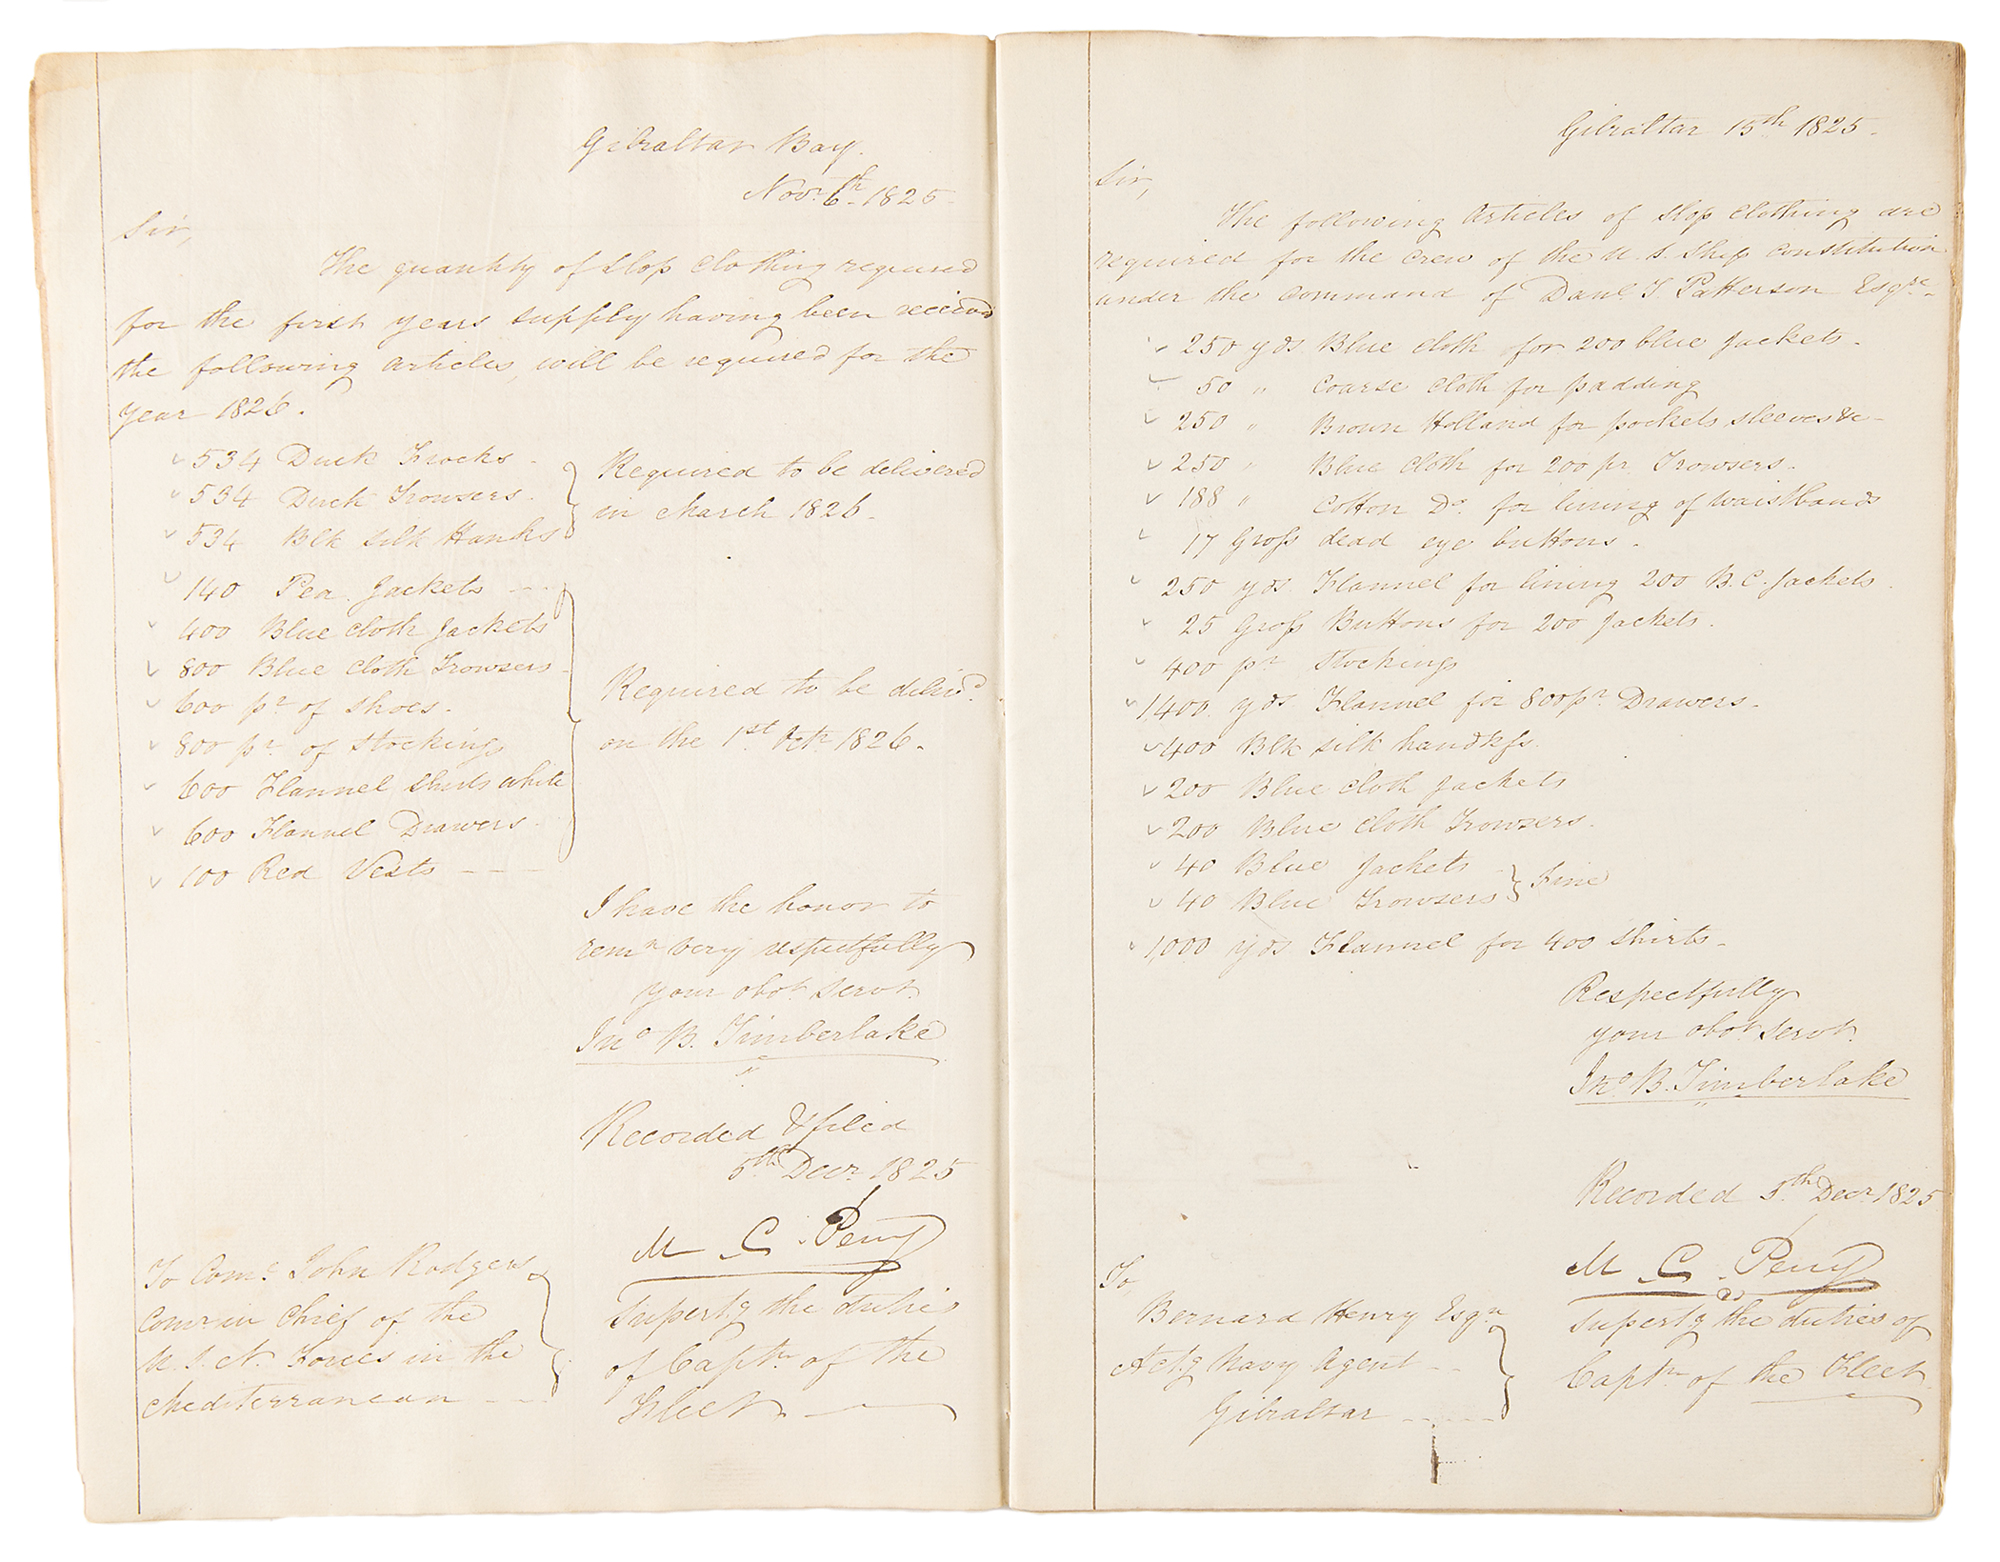 Gibraltar Bay.
Novr. 6th. 1825
Sir,
The quantity of Slop Clothing required
for the first years supply having been recieved
the following articles, will be required for the
year 1826.
534 Duck Frocks
534 Duck Trowsers
534 Blk silk Hankfs
Required to be delivered
in March 1826.
140 Pea Jackets
400 Blue cloth Jackets
800 Blue Cloth Trowsers
600 pr of Shoes.
800 pr. of stockings
600 Flannel shirts white
600 Flannel Drawers
100 Red Vests
Required to be delivd.
on the 1st Octr 1826.
I have the honor to
remn very respectfully
your obot. Servt.
Jno B. Timberlake
Recorded & filed
5th Decr. 1825
M C. Perry
Superty the duties
of Captn of the
Fleet.
To Come. John Rodgers
Comr in Chief of the
U. S. N. Forces in the
Mediterranean
Gibraltar 15th 1825.
Sir,
The following Articles of Slop Clothing are
required for the crew of the U. S. Ship Constitution
under the Command of Danl. T. Patterson Esqre.
250 yds Blue cloth for 200 blue Jackets.
50 " Coarse Cloth for padding
250 " Brown Holland for pockets, sleeves &c
250 " Blue Cloth for 200 pr. Trowsers.
188 " Cotton Do. for lining of waistbands
17 Gross dead eye buttons.
250 yds Flannel for lining 200 B. C. Jackets
25 Gross Buttons for 200 Jackets.
400 pr Stockings
1400 yds Flannel for 800 pr. Drawers.
400 Blk silk handkfs.
200 Blue cloth Jackets
200 Blue cloth Trowsers.
40 Blue Jackets
40 Blue Trowsers
Fine
1,000 yds Flannel for 400 shirts.
Respectfully
your obot. servt.
Jno. B. Timberlake
Recorded 5th. Decr. 1825
M C. Perry
Superty the duties of
Captn of the Fleet
To
Bernard Henry Esqr.
Actg Navy Agent
Gibraltar